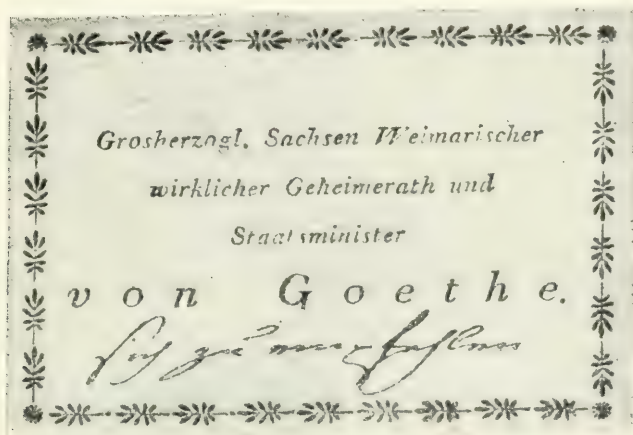 Grosherzogl. Sachsen Weimarischer
wirklicher Geheimerath und
Staatsminister
von Goethe.
sich zu empfehlen